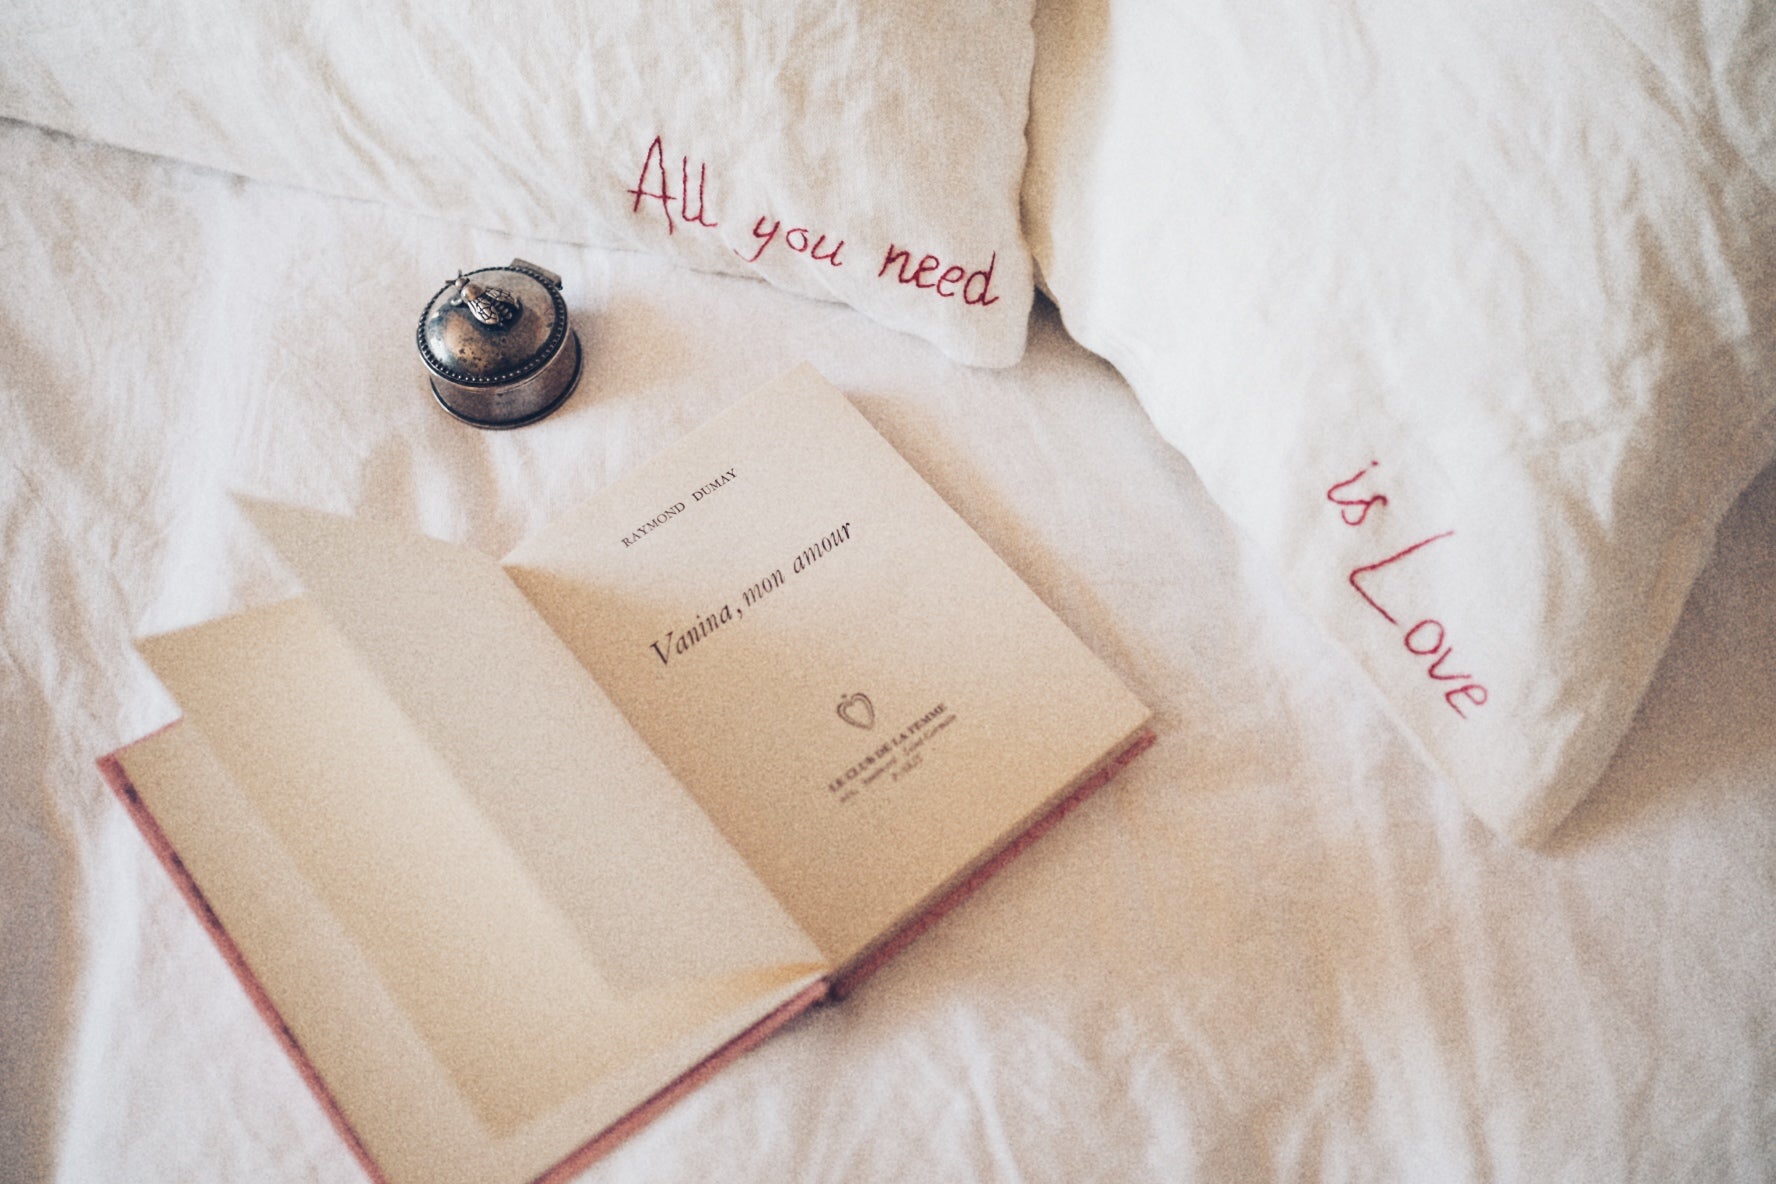 All you need
is Love
RAYMOND DUMAY
Vanina, mon amour
LE CLUB DE LA FEMME
PARIS